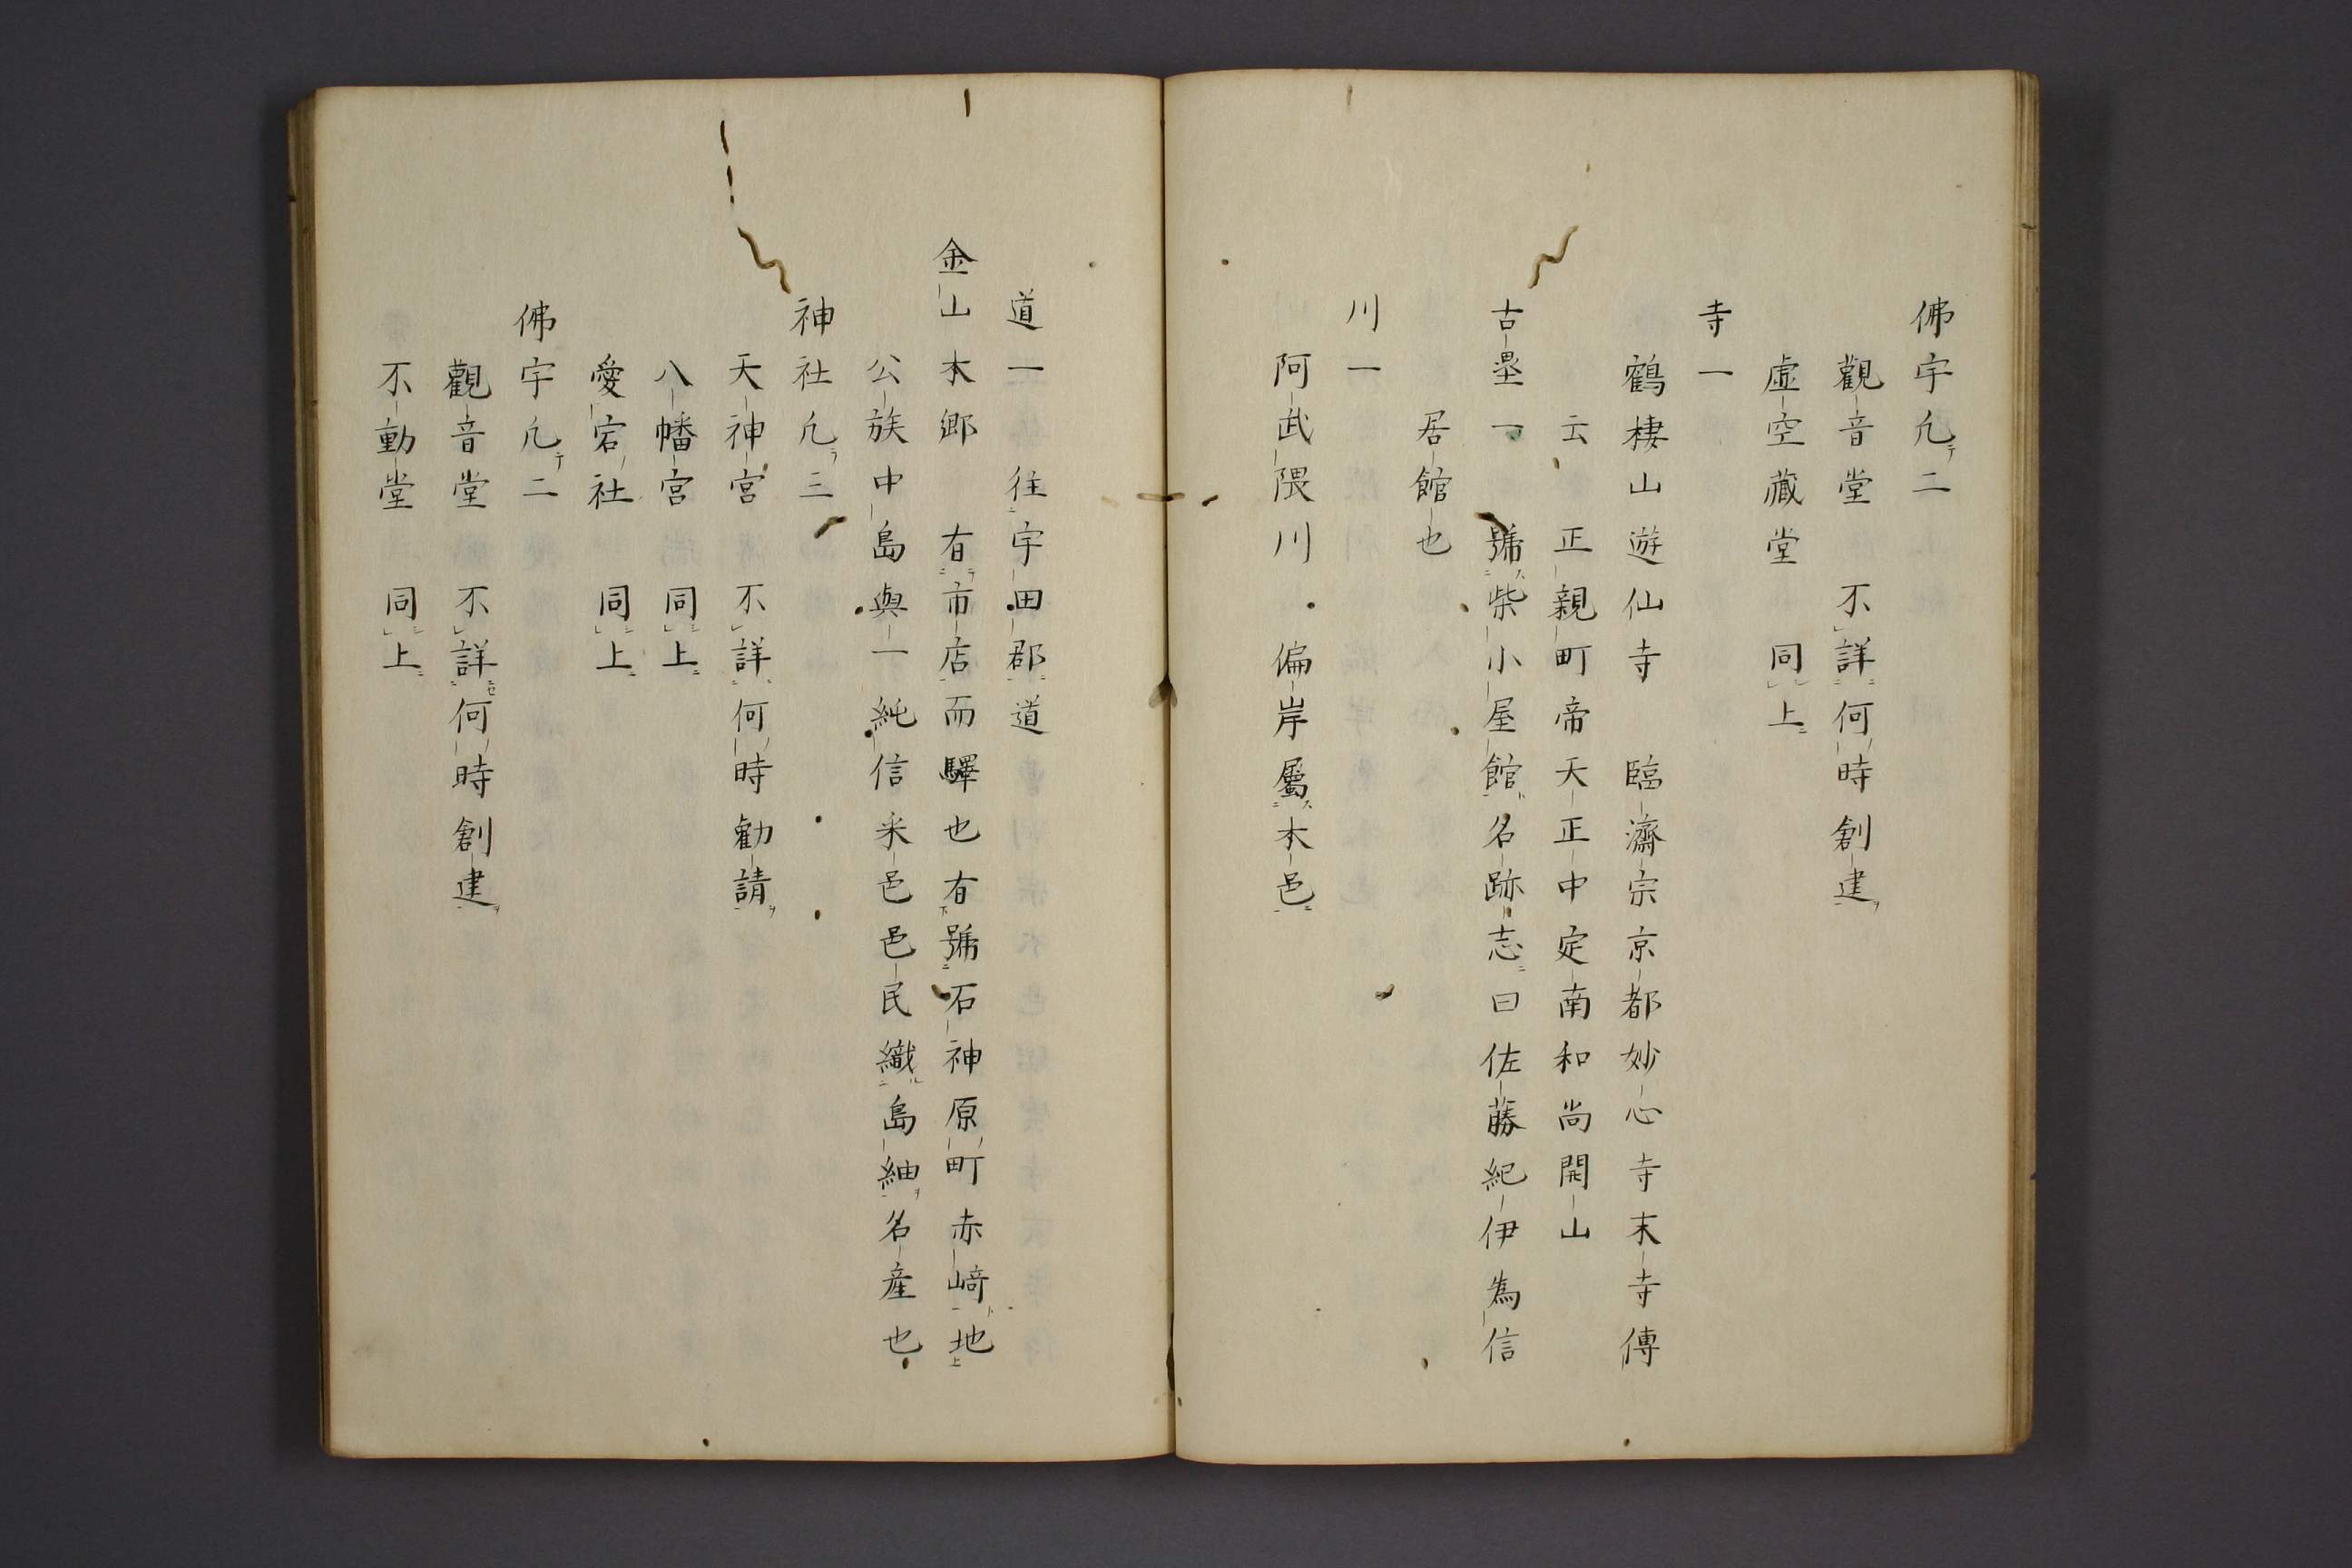 佛宇凢二
觀音堂　不詳何時創建
虛空藏堂　同上
寺一
鶴棲山遊仙寺　臨濟宗京都妙心寺末寺傳
云　正親町帝天正中定南和尚開山
古壘一　號柴小屋館名跡志曰佐藤紀伊為信
居館也
川一
阿武隈川　偏岸屬本邑
道一　往宇田郡道
金山本郷　有市店而驛也有號石神原町赤﨑地
公族中島與一純信采邑邑民織島紬名産也
神社凢三
天神宮　不詳何時勸請
八幡宮　同上
愛宕社　同上
佛宇凢二
觀音堂　不詳何時創建
不動堂　同上